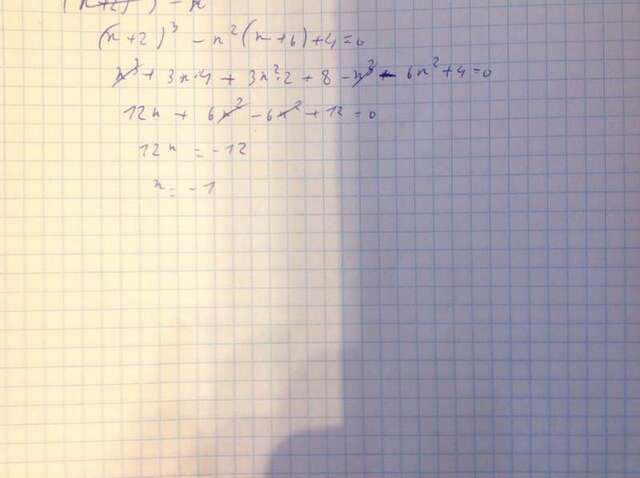 (x+2)³ - x²(x+6)+4=0
x³ + 3x·4 + 3x²·2 + 8 - x³ - 6x²+4=0
12x + 6x² - 6x² + 12 = 0
12x = -12
x = -1